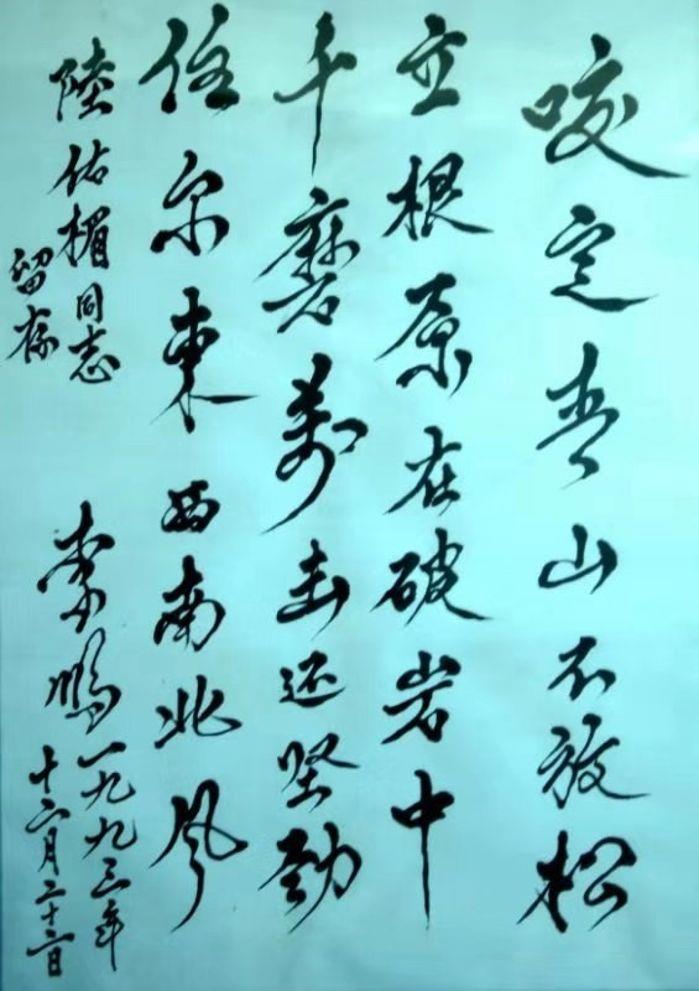 咬定青山不放松
立根原在破岩中
千磨萬击还坚劲
任尔東西南北风
陸佑楣同志
留存
李鹏
一九九三年
十二月二十二日